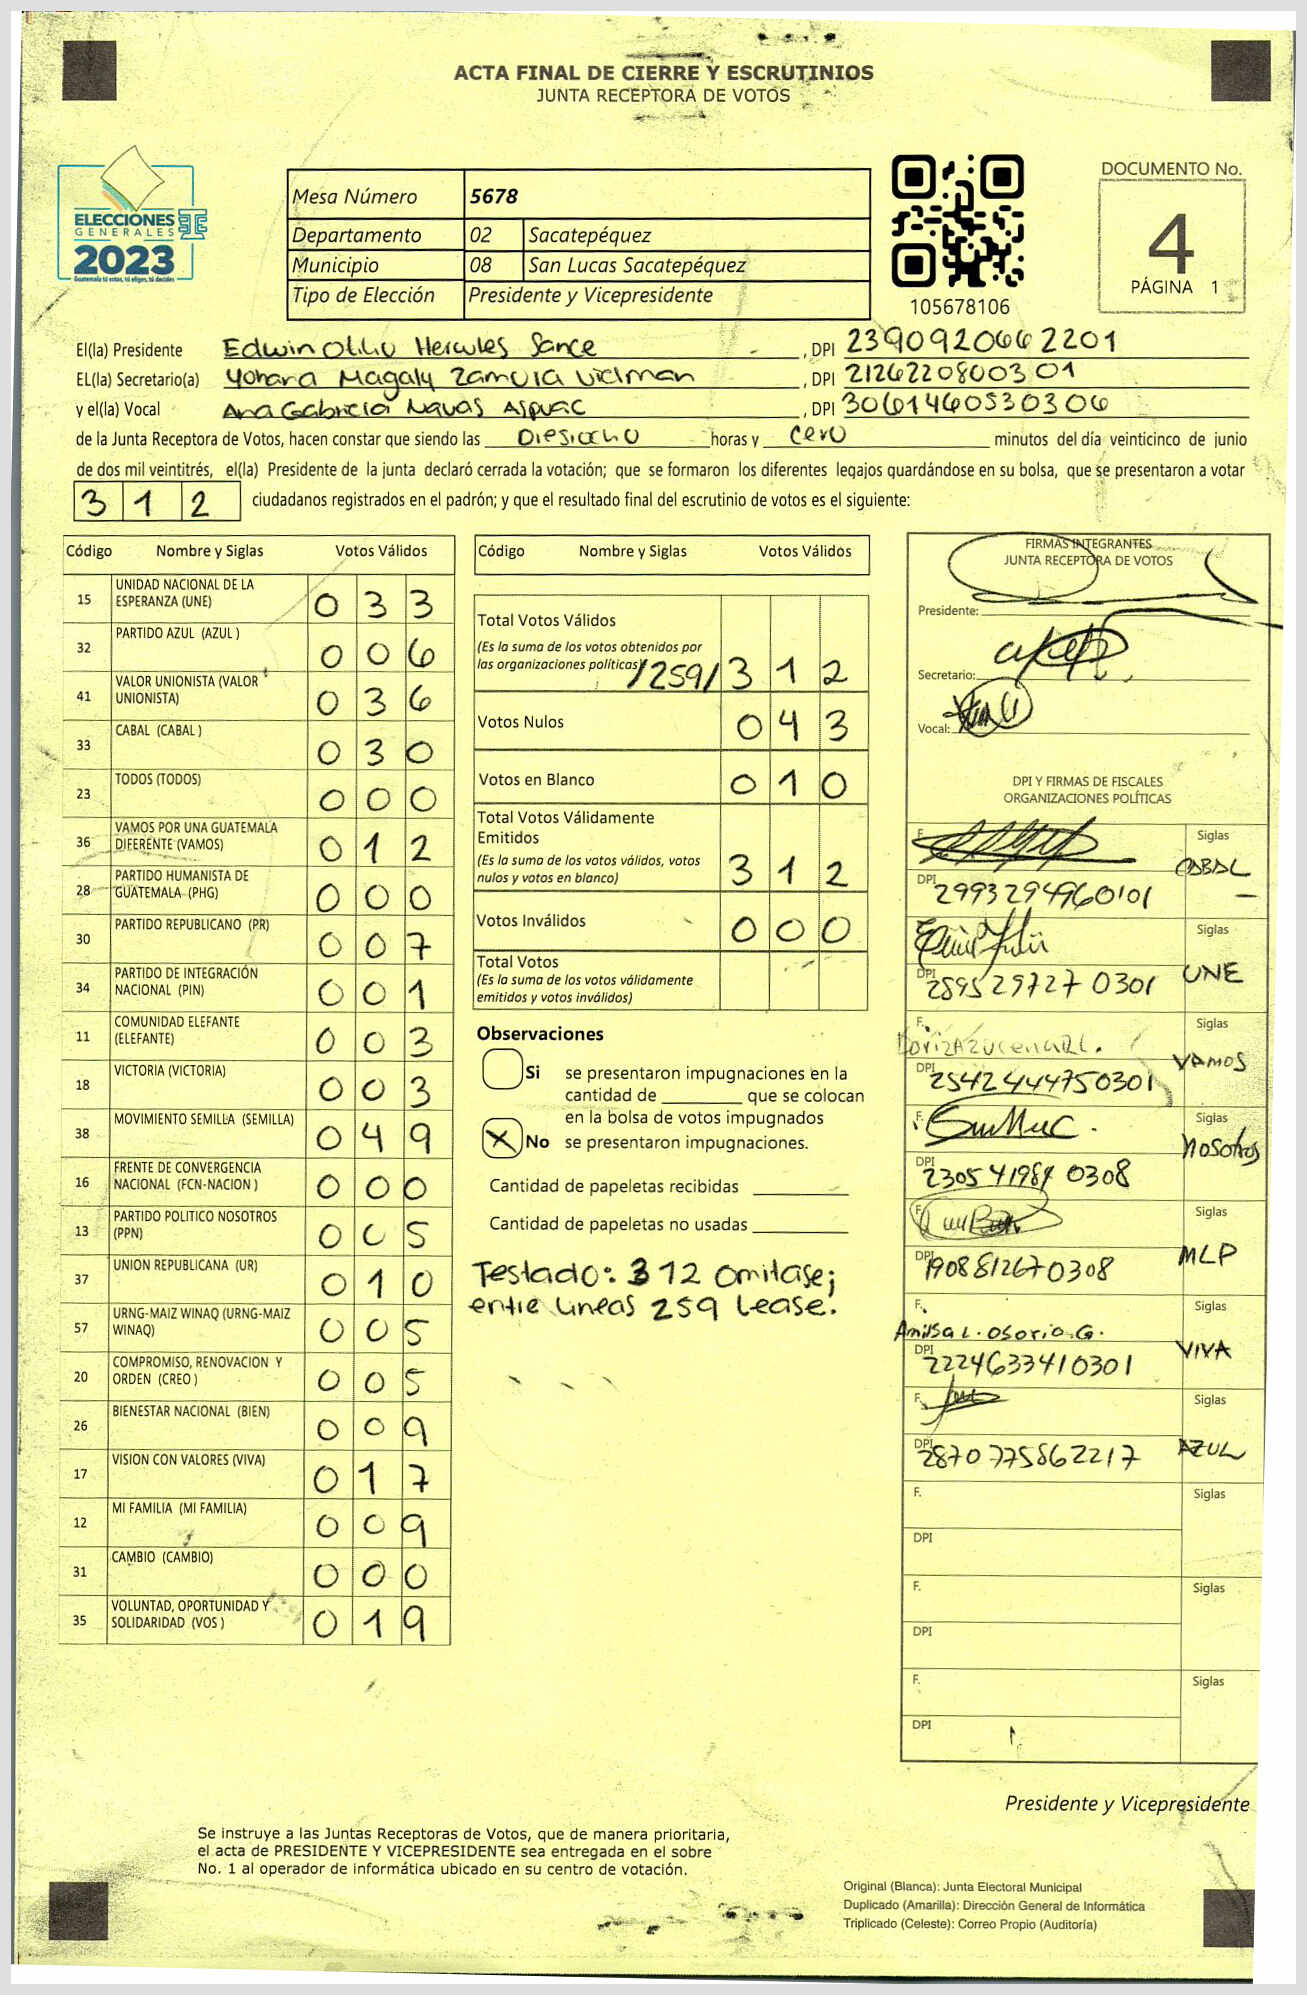 ACTA FINAL DE CIERRE Y ESCRUTINIOS
JUNTA RECEPTORA DE VOTOS
ELECCIONES
GENERALES
2023
Guatemala tú votas, tú eliges, tú decides
Mesa Número 5678
Departamento 02 Sacatepéquez
Municipio 08 San Lucas Sacatepéquez
Tipo de Elección Presidente y Vicepresidente
105678106
DOCUMENTO No.
4
PÁGINA 1
El(la) Presidente Edwin Otilio Hercules Sance, DPI 2390920662201
EL(la) Secretario(a) Yohana Magaly Zamora Vielman, DPI 2126220800301
y el(la) Vocal Ana Gabriela Navas Aspuac, DPI 3061460530306
de la Junta Receptora de Votos, hacen constar que siendo las Diesiocho horas y cero minutos del día veinticinco de junio
de dos mil veintitrés, el(la) Presidente de la junta declaró cerrada la votación; que se formaron los diferentes legajos quardándose en su bolsa, que se presentaron a votar
312 ciudadanos registrados en el padrón; y que el resultado final del escrutinio de votos es el siguiente:
Código Nombre y Siglas Votos Válidos
15 UNIDAD NACIONAL DE LA ESPERANZA (UNE) 033
32 PARTIDO AZUL (AZUL ) 006
41 VALOR UNIONISTA (VALOR UNIONISTA) 036
33 CABAL (CABAL ) 030
23 TODOS (TODOS) 000
36 VAMOS POR UNA GUATEMALA DIFERENTE (VAMOS) 012
28 PARTIDO HUMANISTA DE GUATEMALA (PHG) 000
30 PARTIDO REPUBLICANO (PR) 007
34 PARTIDO DE INTEGRACIÓN NACIONAL (PIN) 001
11 COMUNIDAD ELEFANTE (ELEFANTE) 003
18 VICTORIA (VICTORIA) 003
38 MOVIMIENTO SEMILLA (SEMILLA) 049
16 FRENTE DE CONVERGENCIA NACIONAL (FCN-NACION ) 000
13 PARTIDO POLITICO NOSOTROS (PPN) 005
37 UNION REPUBLICANA (UR) 010
57 URNG-MAIZ WINAQ (URNG-MAIZ WINAQ) 005
20 COMPROMISO, RENOVACION Y ORDEN (CREO ) 005
26 BIENESTAR NACIONAL (BIEN) 009
17 VISION CON VALORES (VIVA) 017
12 MI FAMILIA (MI FAMILIA) 009
31 CAMBIO (CAMBIO) 000
35 VOLUNTAD, OPORTUNIDAD Y SOLIDARIDAD (VOS ) 019
Código Nombre y Siglas Votos Válidos
Total Votos Válidos
(Es la suma de los votos obtenidos por
las organizaciones políticas) /259/ 312
Votos Nulos 043
Votos en Blanco 010
Total Votos Válidamente
Emitidos
(Es la suma de los votos válidos, votos
nulos y votos en blanco) 312
Votos Inválidos 000
Total Votos
(Es la suma de los votos válidamente
emitidos y votos inválidos)
Observaciones
Si se presentaron impugnaciones en la
cantidad de ________ que se colocan
en la bolsa de votos impugnados
X No se presentaron impugnaciones.
Cantidad de papeletas recibidas
Cantidad de papeletas no usadas
Testado: 312 omitase;
entre lineas 259 Lease.
FIRMAS INTEGRANTES
JUNTA RECEPTORA DE VOTOS
Presidente:
Secretario:
Vocal:
DPI Y FIRMAS DE FISCALES
ORGANIZACIONES POLÍTICAS
F. Siglas
DPI 2993294960101 CABAL
F. Siglas
DPI 2895297270301 UNE
F. Siglas
DPI 2542444750301 VAMOS
F. Siglas
DPI 2305419840308 Nosotros
F. Siglas
DPI 1908812670308 MLP
F. Siglas
Amilsa L. Osorio G.
DPI 2224633410301 VIVA
F. Siglas
DPI 2870775862217 AZUL
F. Siglas
DPI
F. Siglas
DPI
F. Siglas
DPI
Presidente y Vicepresidente
Se instruye a las Juntas Receptoras de Votos, que de manera prioritaria,
el acta de PRESIDENTE Y VICEPRESIDENTE sea entregada en el sobre
No. 1 al operador de informática ubicado en su centro de votación.
Original (Blanca): Junta Electoral Municipal
Duplicado (Amarilla): Dirección General de Informática
Triplicado (Celeste): Correo Propio (Auditoría)